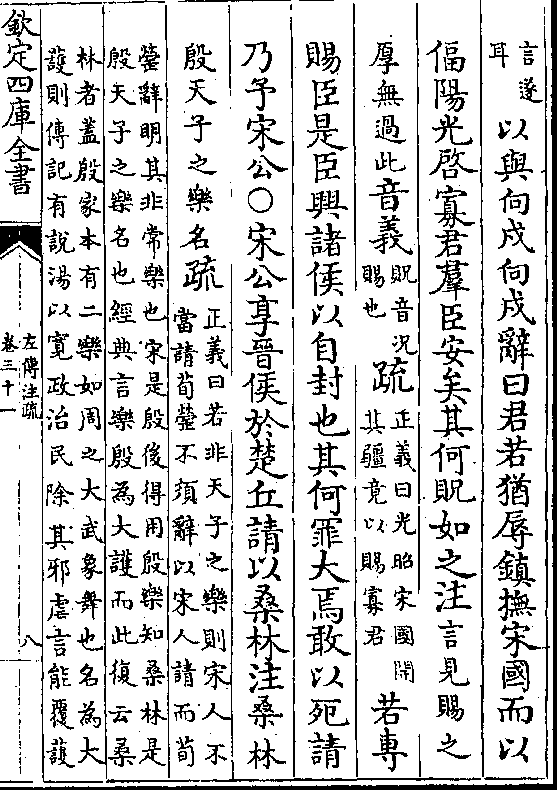 言遂
耳
以與向戌向戌辭曰君若猶辱鎮撫宋國而以
偪陽光啓寡君羣臣安矣其何貺如之注言見賜之
厚無過此音義貺音況
賜也
疏正義曰光昭宋國開
其疆竟以賜寡君
若專
賜臣是臣興諸侯以自封也其何罪大焉敢以死請
乃予宋公〇宋公享晉侯於楚丘請以桑林注桑林
殷天子之樂名疏正義曰若非天子之樂則宋人不
當請荀罃不須辭以宋人請而荀
罃辭明其非常樂也宋是殷後得用殷樂知桑林是
殷天子之樂名也經典言樂殷為大護而此復云桑
林者蓋殷家本有二樂如周之大武象舞也名為大
護則傳記有說湯以寛政治民除其邪虐言能覆護
欽定四庫全書
左傳注疏
卷三十一
八